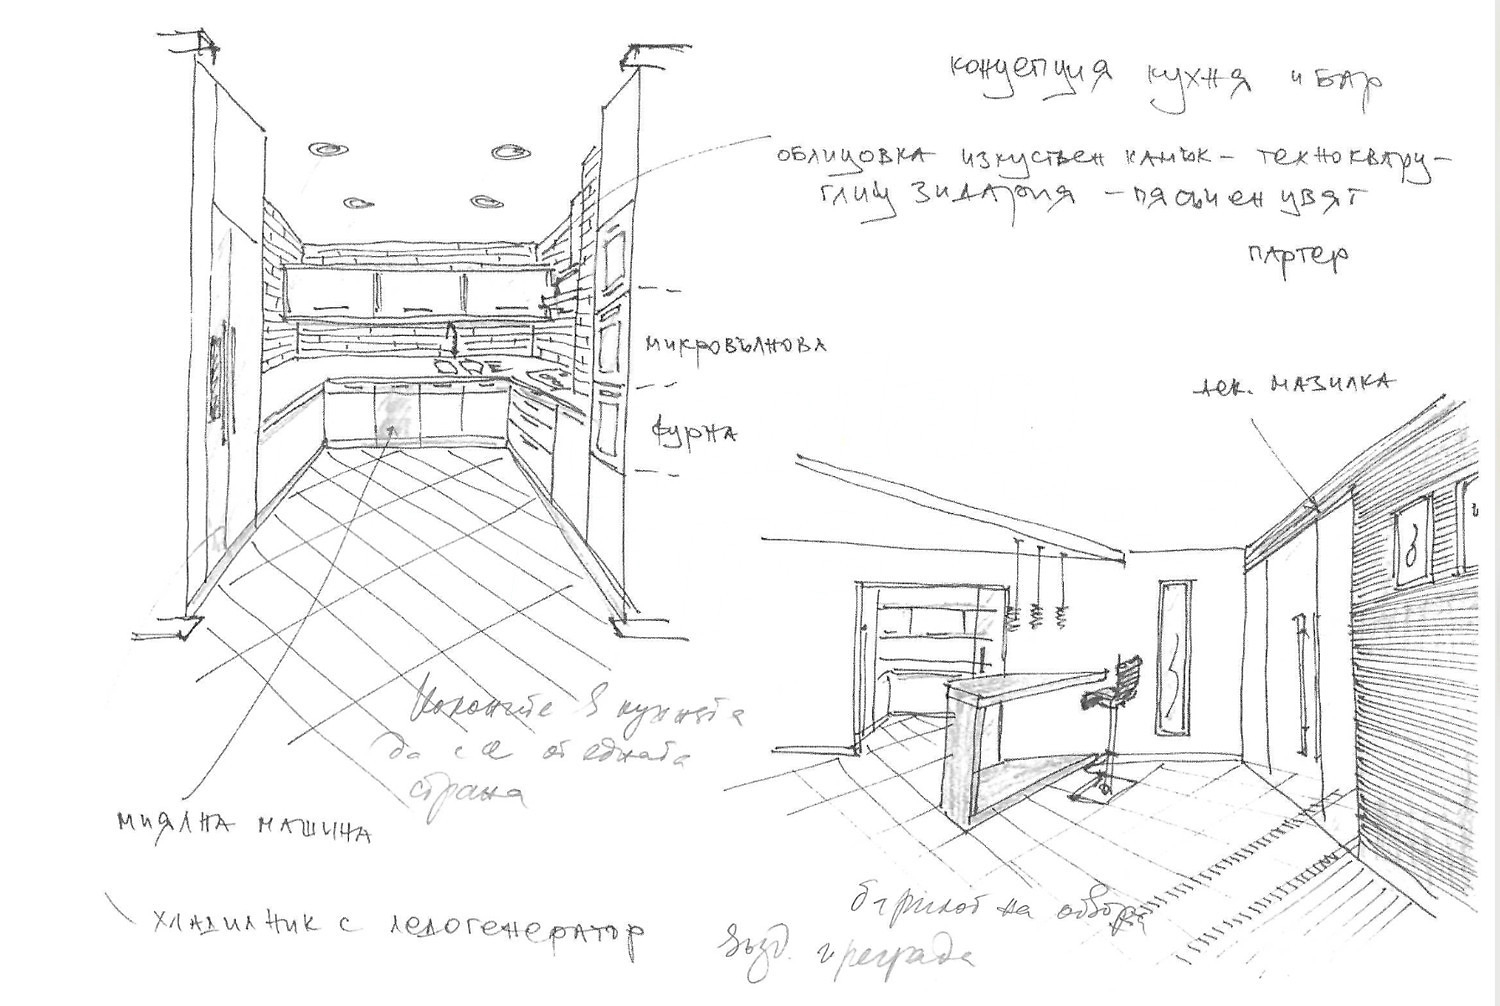 концепция кухня и бар
облицовка изкуствен камък - технокварц -
глиц зидария - пясъчен цвят
партер
микровълнова
дек. мазилка
фурна
в кухнята
да са от едната
страна
миялна машина
хладилник с ледогенератор
на отвора
възд. преграда